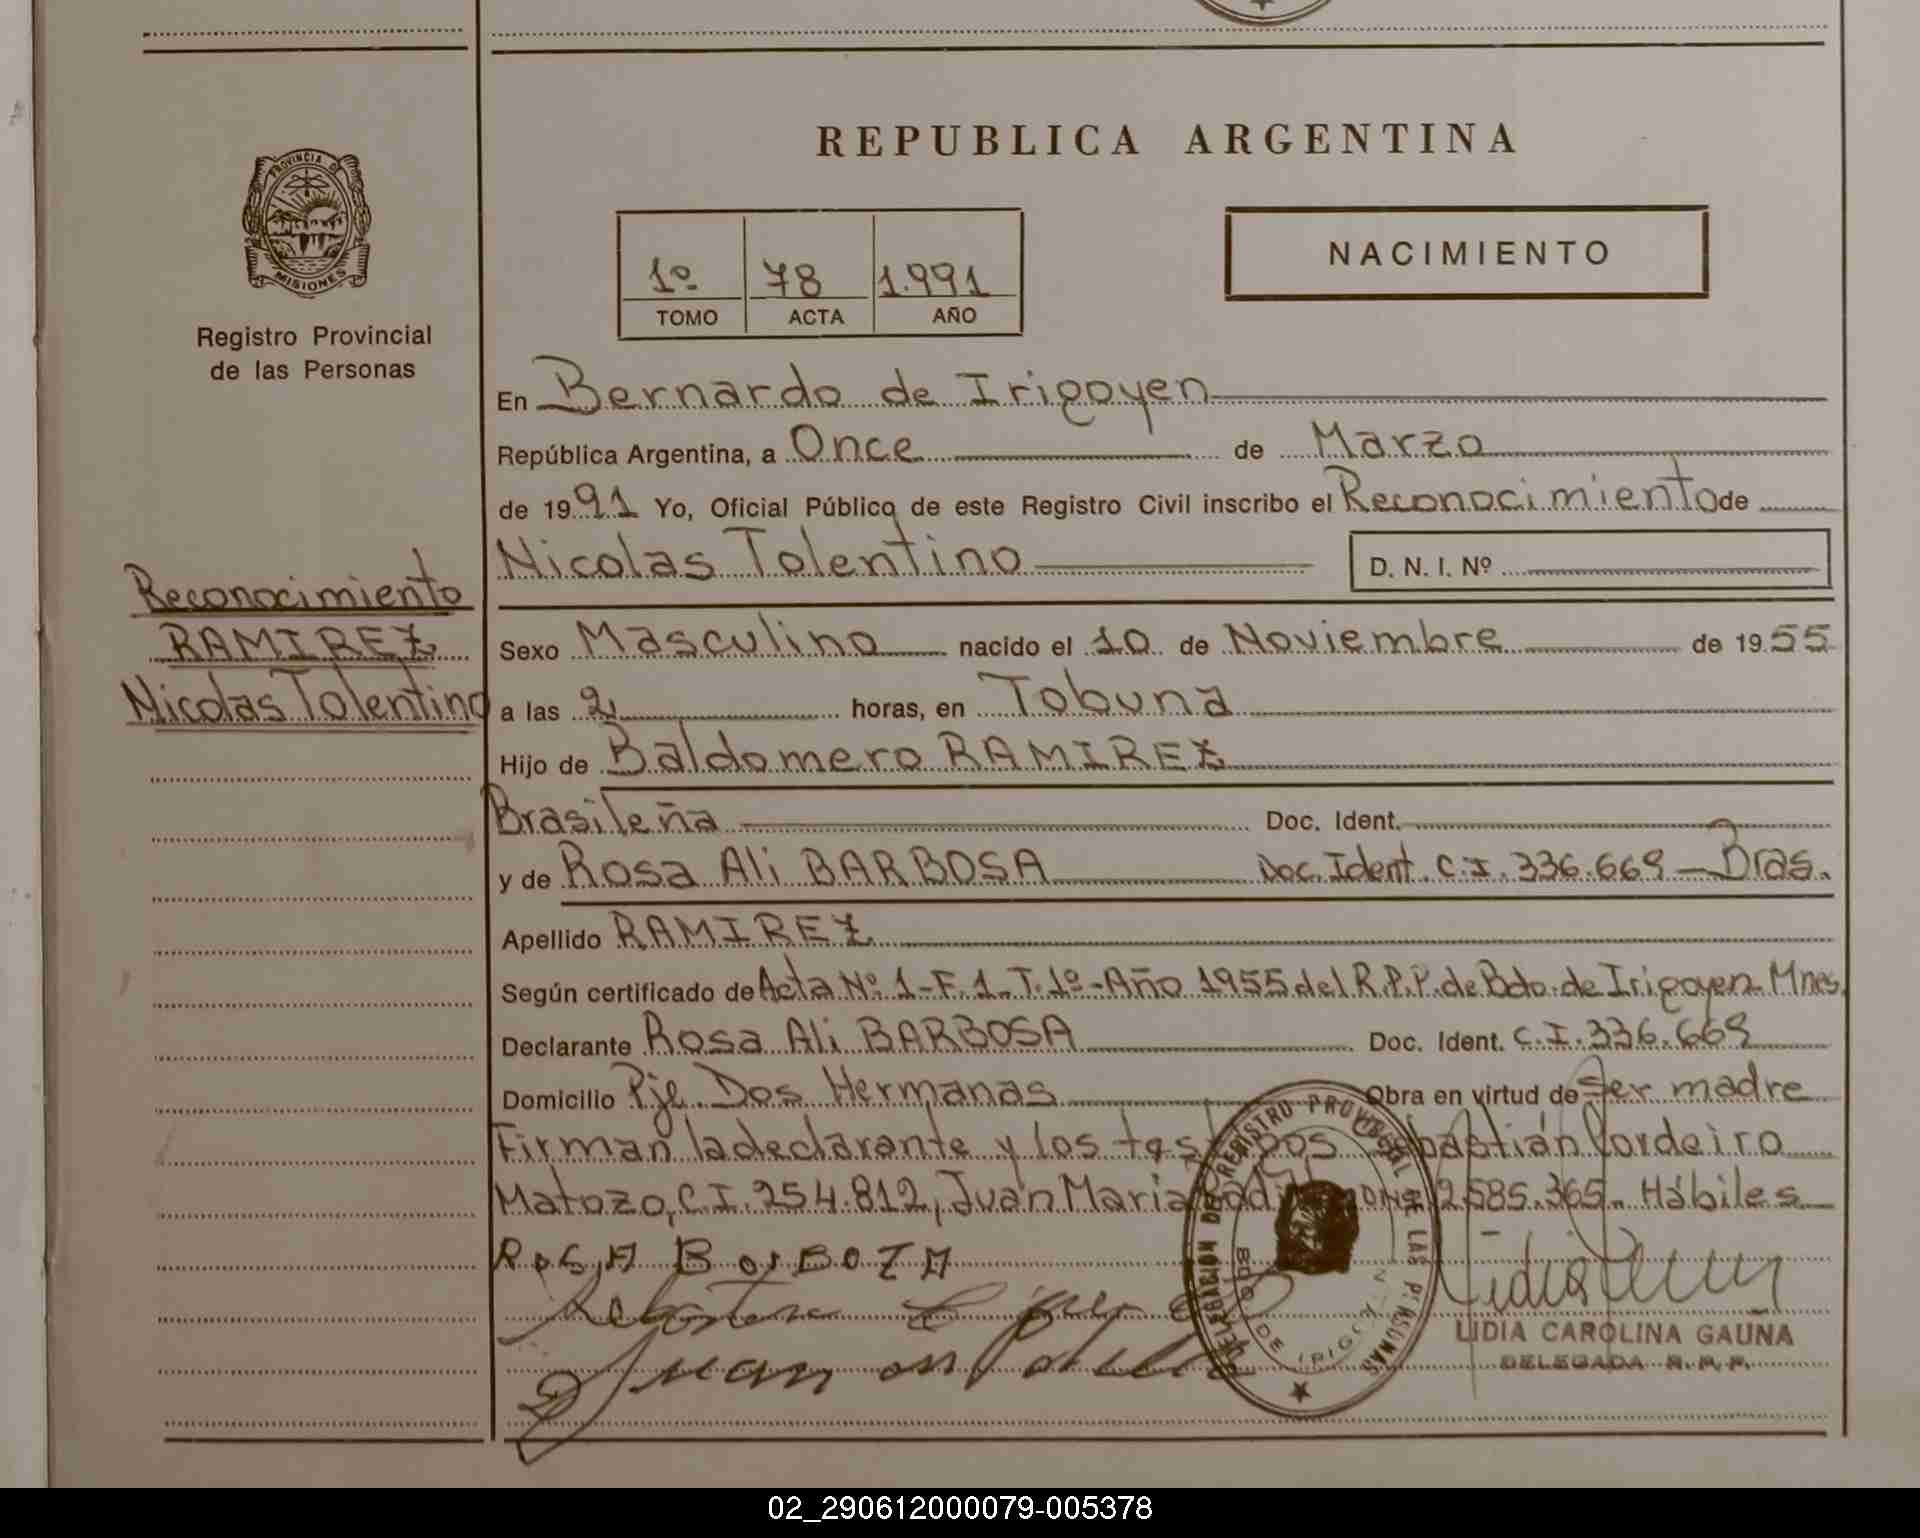 PROVINCIA DE
MISIONES
Registro Provincial
de las Personas
Reconocimiento
RAMIREZ
Nicolas Tolentino
REPUBLICA ARGENTINA
1º 78 1.991
TOMO ACTA AÑO
NACIMIENTO
En Bernardo de Irigoyen
República Argentina, a Once de Marzo
de 1991 Yo, Oficial Público de este Registro Civil inscribo el Reconocimiento de
Nicolas Tolentino D. N. I. Nº
Sexo Masculino nacido el 10 de Noviembre de 1955
a las 2 horas, en Tobuna
Hijo de Baldomero RAMIREZ
Brasileña Doc. Ident.
y de Rosa Ali BARBOSA Doc. Ident. C.I. 336.669 - Bras.
Apellido RAMIREZ
Según certificado de Acta Nº 1-F.1-T.1º-Año 1955 del R.P.P. de Bdo. de Irigoyen Mnes.
Declarante Rosa Ali BARBOSA Doc. Ident. C.I. 336.669
Domicilio Pje. Dos Hermanas Obra en virtud de Ser madre
Firman la declarante y los testigos Sebastián Cordeiro
Matozo, C.I. 254.812, Juan Maria 2.585.365. Hábiles
ROSA BORBOZA
Juan
LIDIA CAROLINA GAUNA
DELEGADA R. P. P.
DELEGACION DEL REGISTRO PROVINCIAL DE LAS PERSONAS
BDO. DE IRIGOYEN
02_290612000079-005378